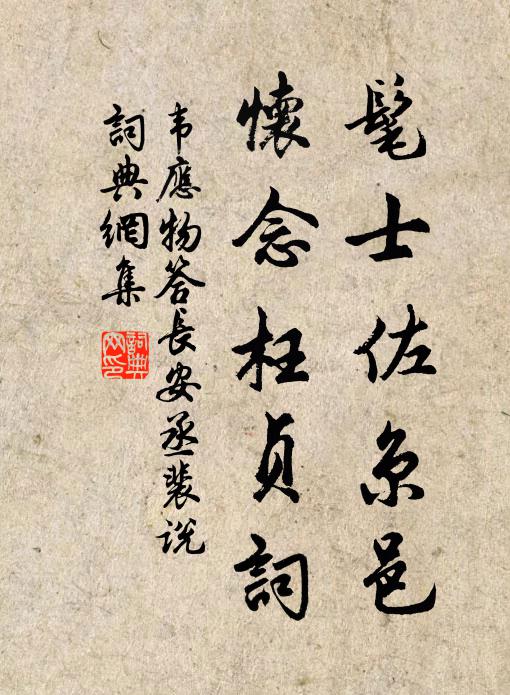 髦士佐京邑
懷念枉貞詞
韦應物答長安丞裴说
詞典網集
詞典网印